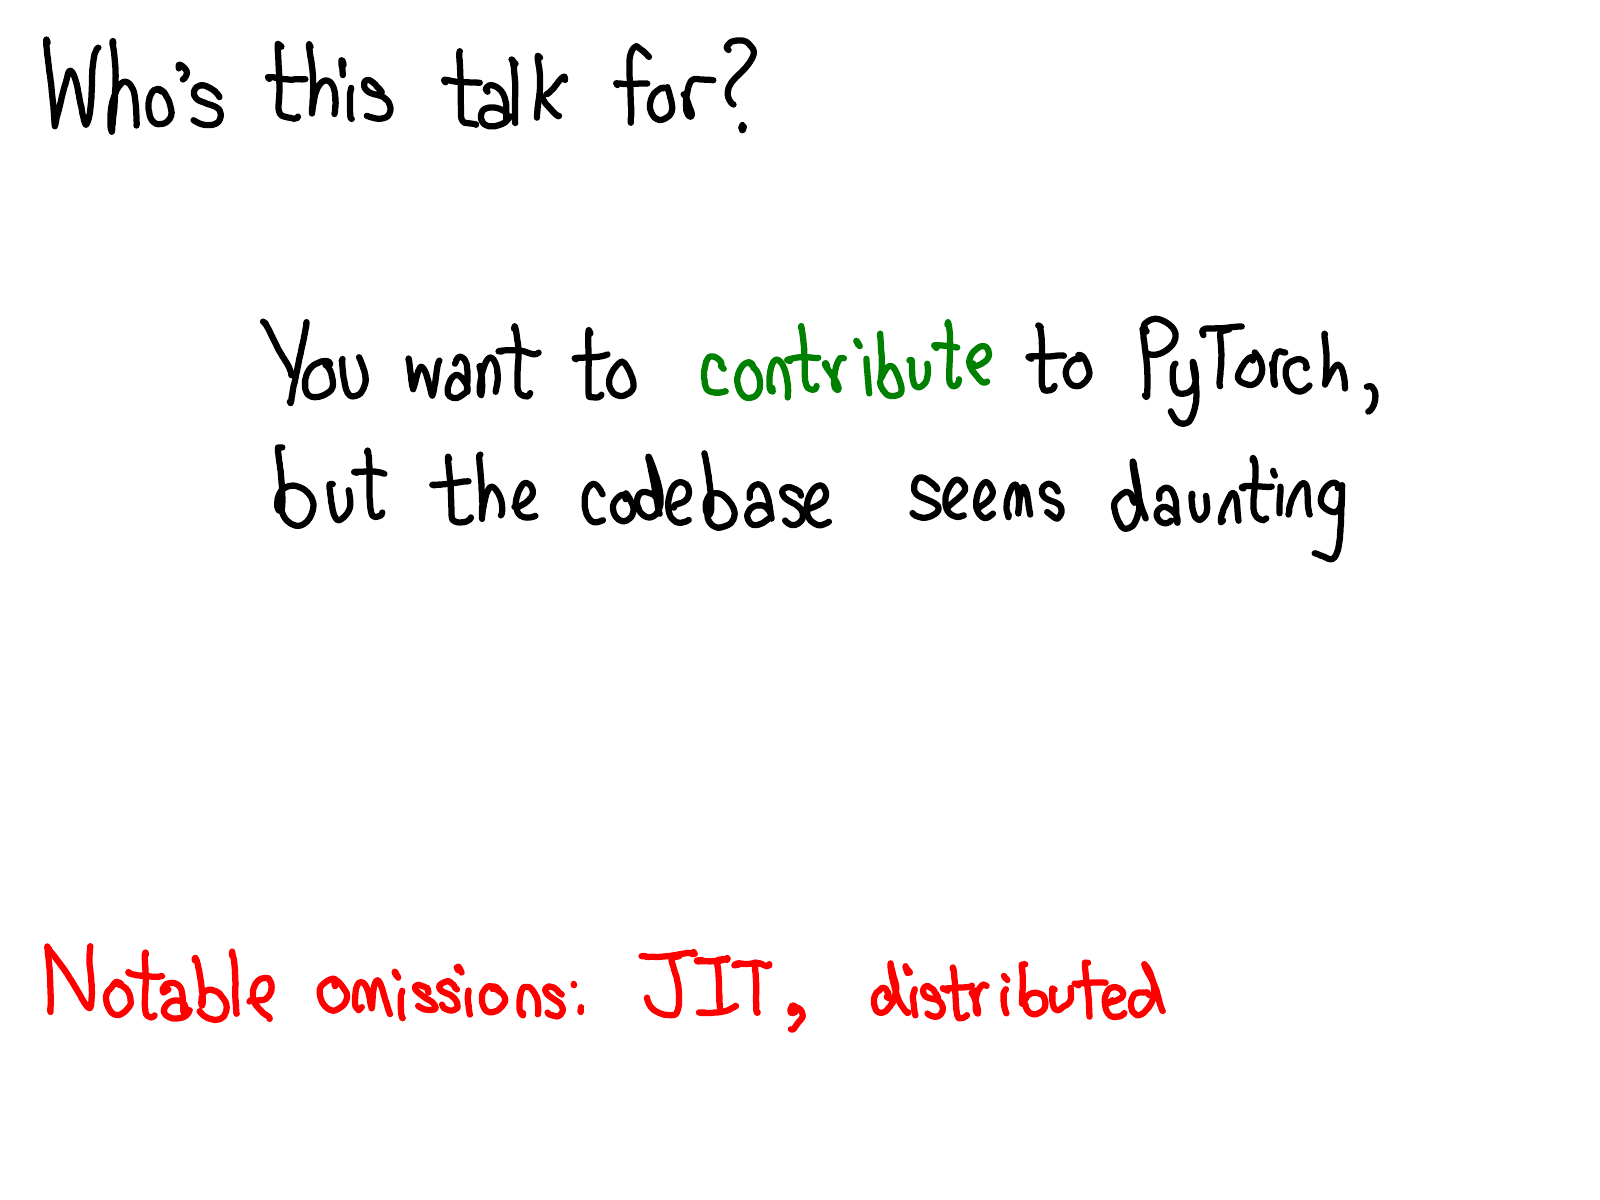 Who's this talk for?
You want to contribute to PyTorch,
but the codebase seems daunting
Notable omissions: JIT, distributed